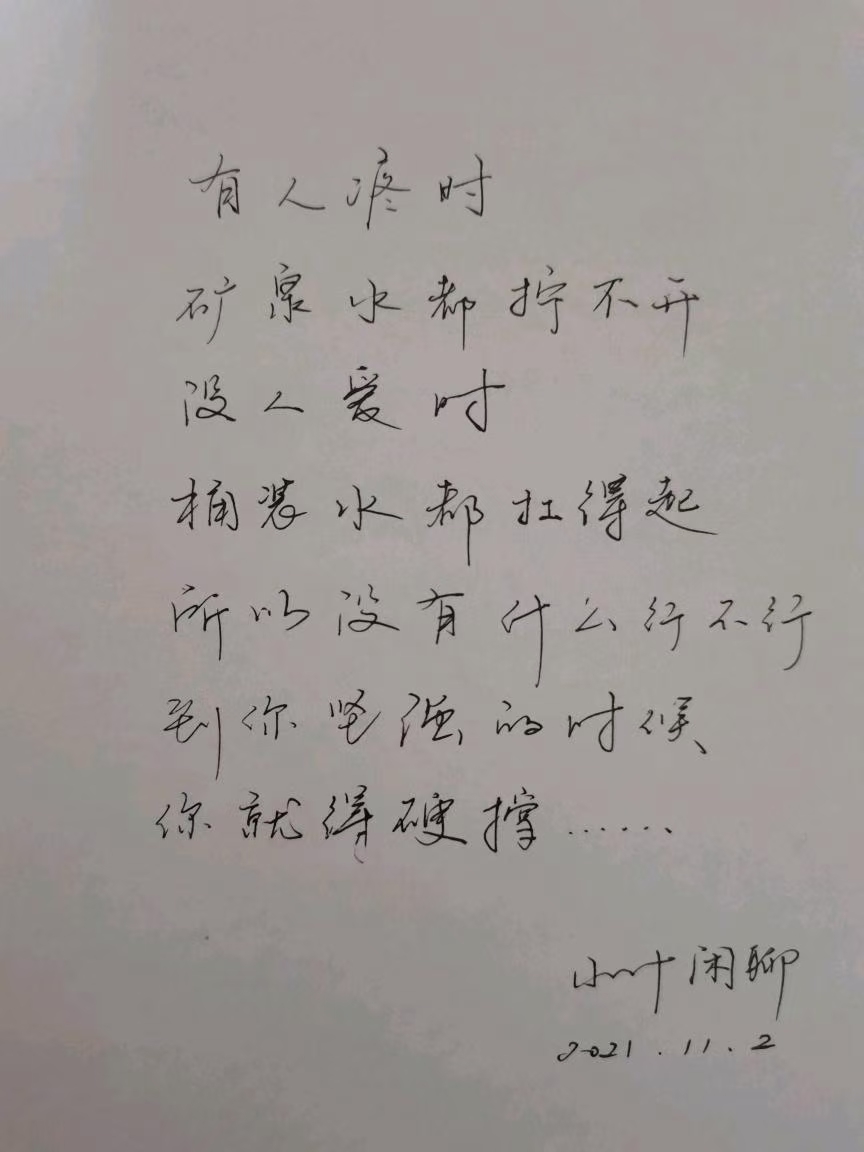 有人疼时
矿泉水都拧不开
没人爱时
桶装水都扛得起
所以没有什么行不行
到你坚强的时候
你就得硬撑……
小叶闲聊
2021.11.2